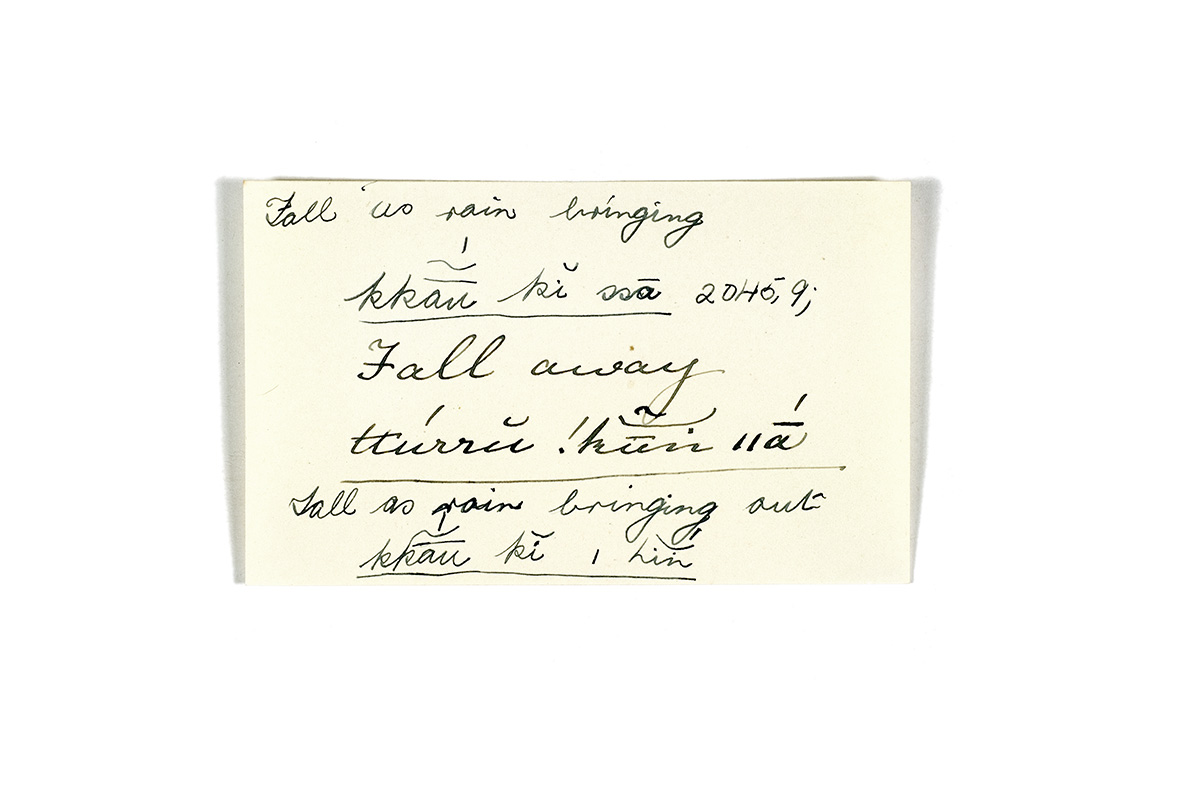 Fall as rain bringing
kkā̰́u kĭ ssā 2045,9;
Fall away
ttúrrŭ !kū̆̃in ǁā́
Fall as rain bringing out
kkā̰́u kĭ ǀ hĭń